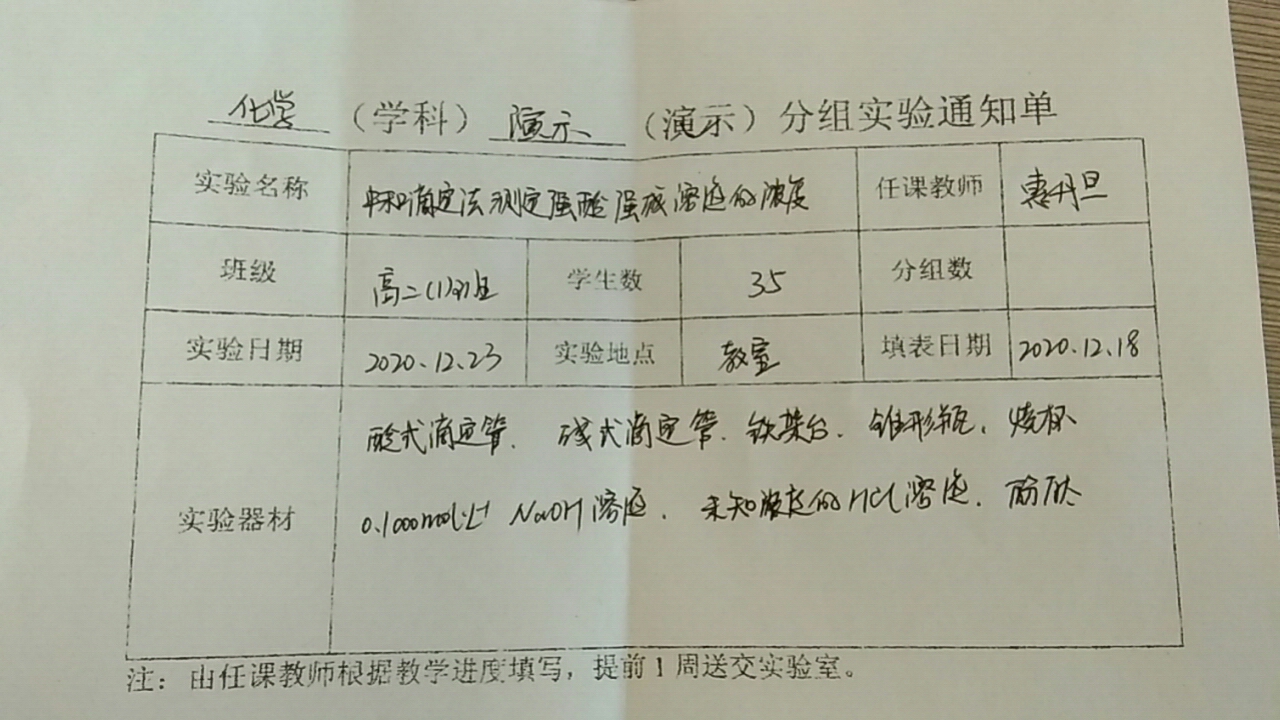 化学（学科）演示（演示）分组实验通知单
实验名称 中和滴定法测定强酸强碱溶液的浓度 任课教师 惠丹旦
班级 高二(1)班 学生数 35 分组数
实验日期 2020.12.23 实验地点 教室 填表日期 2020.12.18
酸式滴定管、碱式滴定管、铁架台、锥形瓶、烧杯
实验器材 0.1000mol·L⁻¹ NaOH溶液、未知浓度的HCl溶液、酚酞
注：由任课教师根据教学进度填写，提前1周送交实验室。